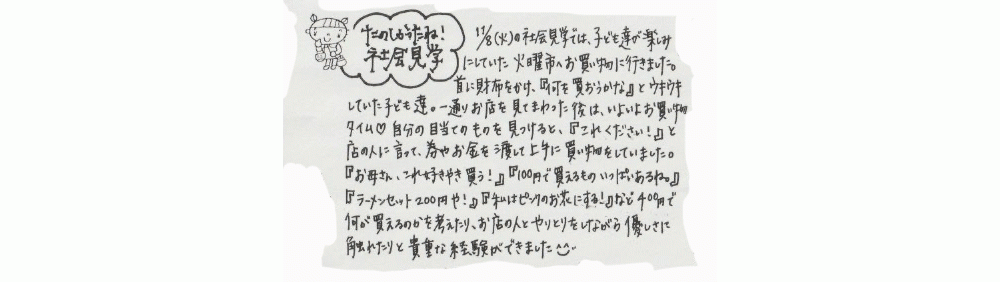 たのしかったね！
社会見学
11/8(火)の社会見学では、子ども達が楽しみ
にしていた火曜市へお買い物に行きました。
首に財布をかけ、『何を買おうかな』とウキウキ
していた子ども達。一通りお店を見てまわった後は、いよいよお買い物
タイム♡自分の目当てのものを見つけると、『これください！』と
店の人に言って、券やお金を渡して上手に買い物をしていました。
『お母さん、これ好きやき買う！』『100円で買えるものいっぱいあるね。』
『ラーメンセット200円や！』『私はピンクのお花にする！』など400円で
何が買えるのかを考えたり、お店の人とやりとりをしながら優しさに
触れたりと貴重な経験ができました